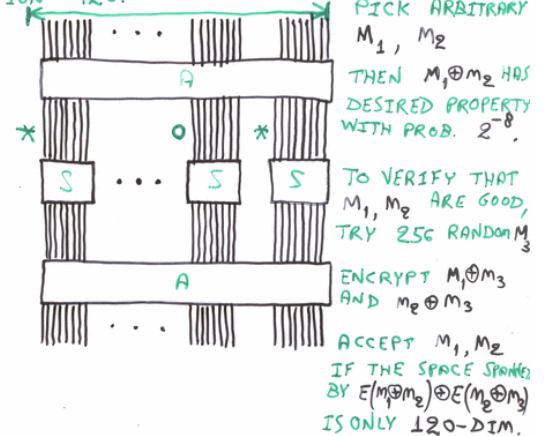 PICK ARBITRARY
M₁, M₂
A
THEN M₁⊕M₂ HAS
DESIRED PROPERTY
WITH PROB. 2⁻⁸.
* o *
S ... S S
TO VERIFY THAT
M₁, M₂ ARE GOOD,
TRY 256 RANDOM M₃
A
ENCRYPT M₁⊕M₃
AND M₂⊕M₃
ACCEPT M₁, M₂
IF THE SPACE SPANNED
BY E(M₁⊕M₂)⊕E(M₂⊕M₃)
IS ONLY 120-DIM.